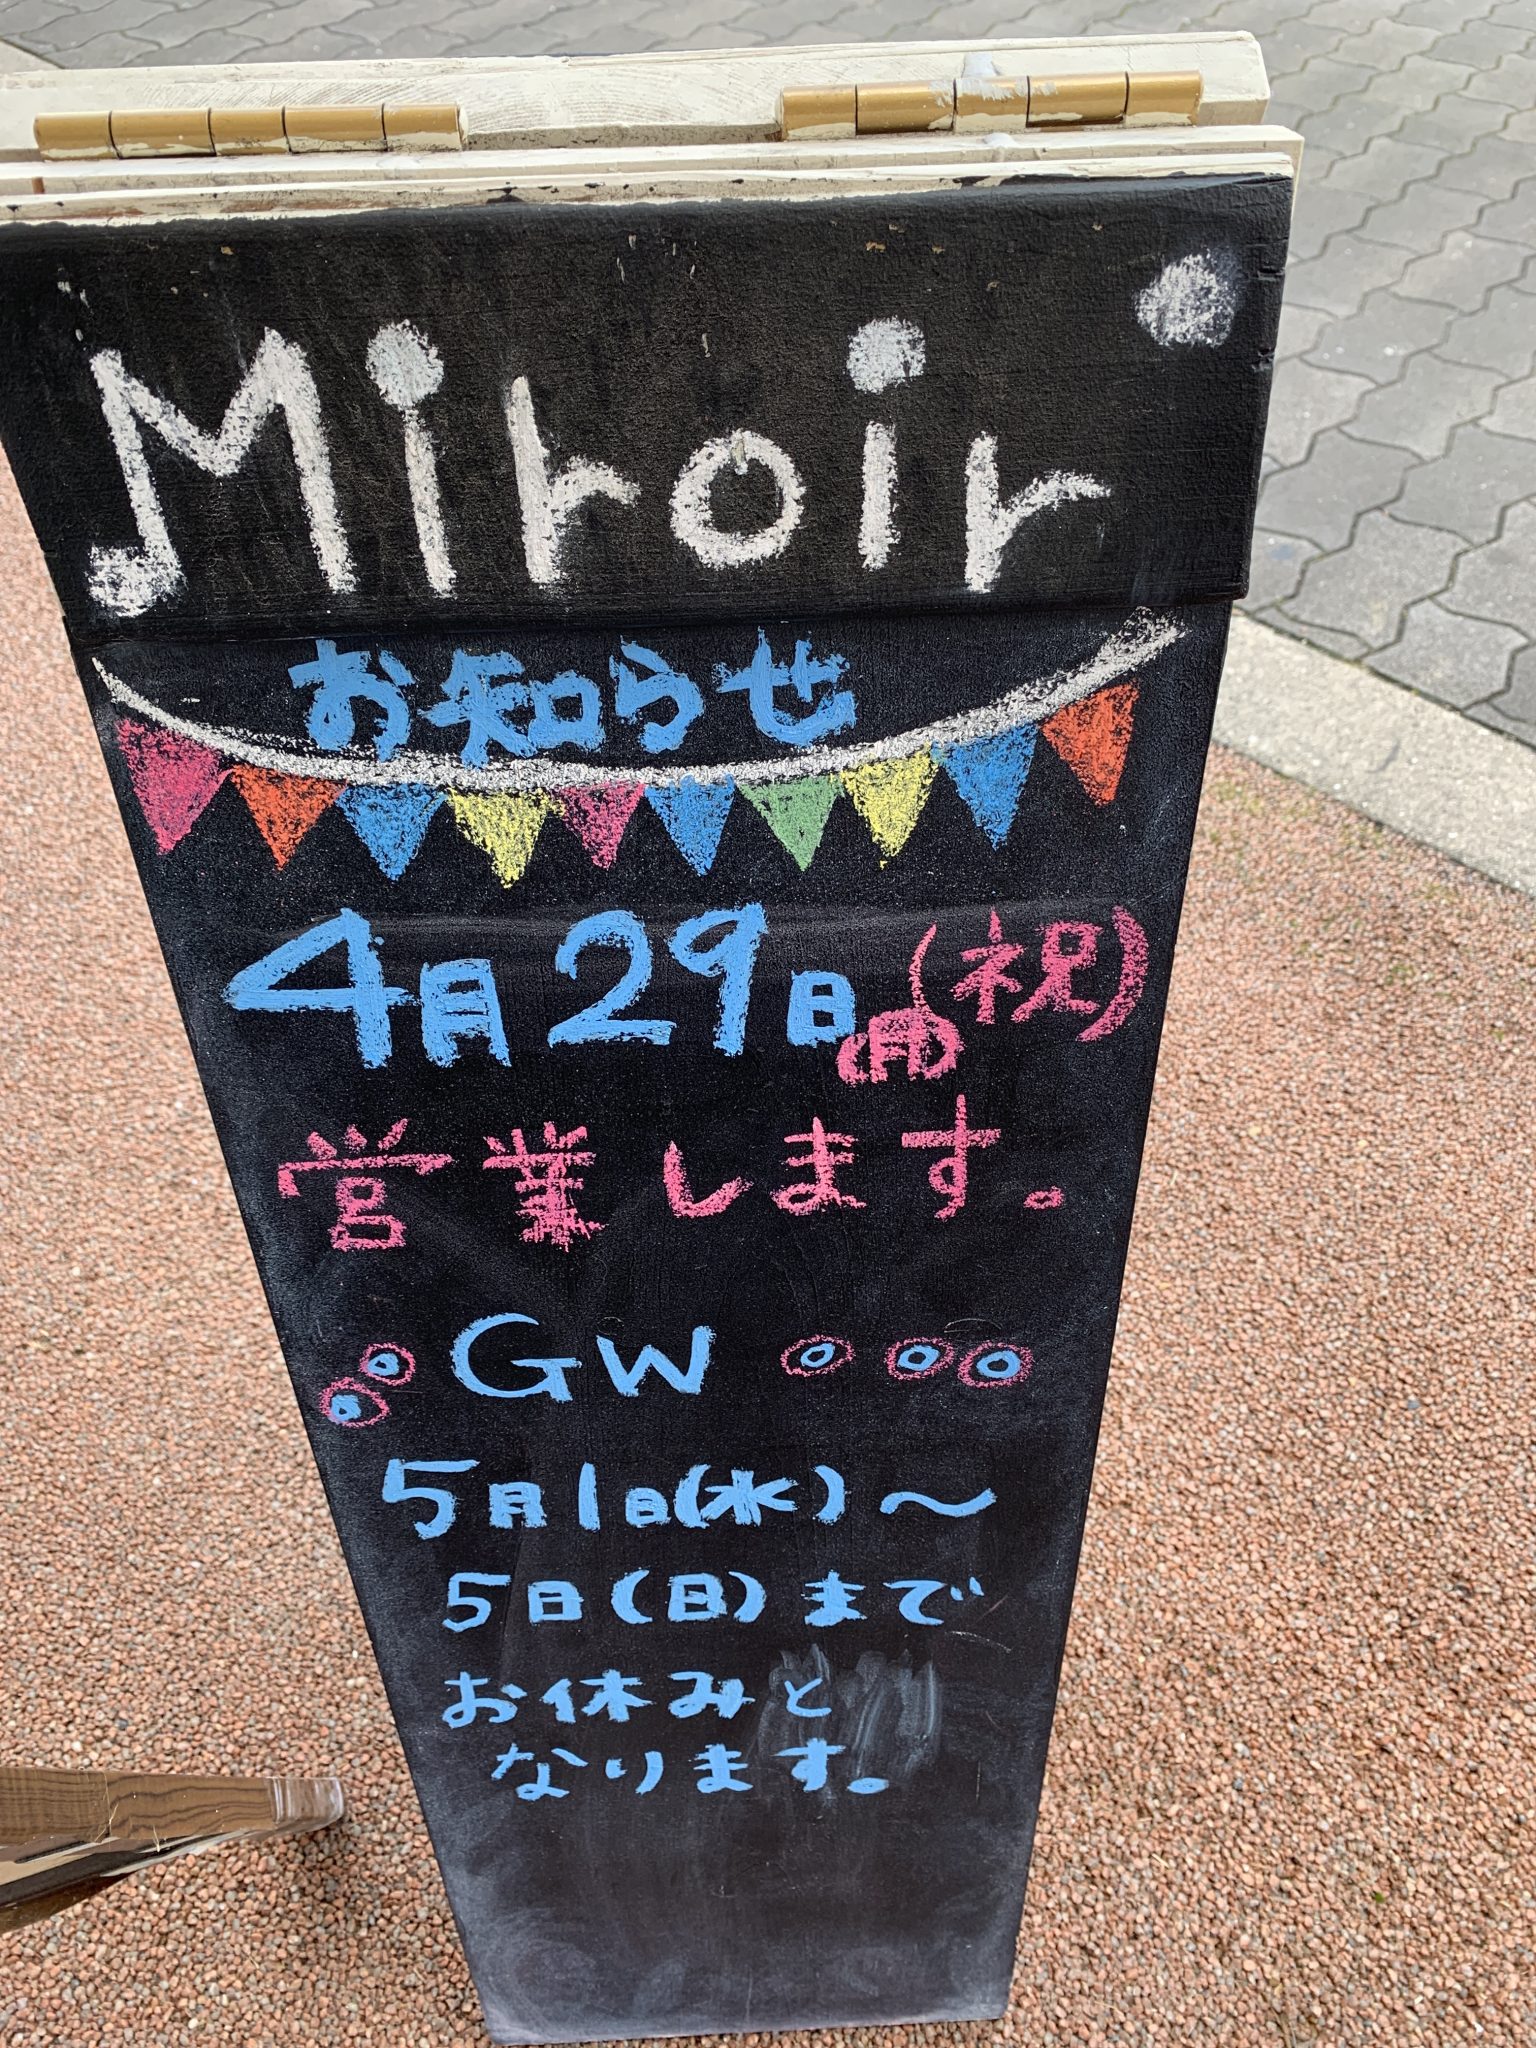 Miroir
お知らせ
4月29日(月)(祝)
営業します。
GW
5月1日(水)〜
5日(日)まで
お休みと
なります。